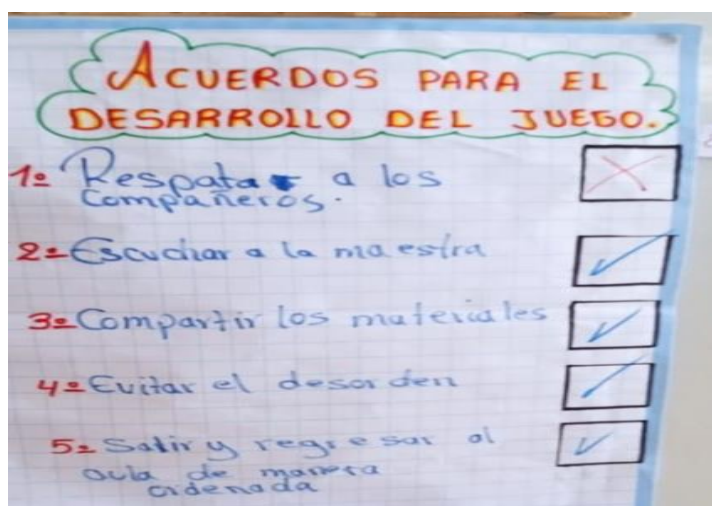 ACUERDOS PARA EL
DESARROLLO DEL JUEGO.
1º Respatar a los
compañeros.
2º Escuchar a la maestra
3º Compartir los materiales
4º Evitar el desorden
5º Salir y regresar al
aula de manera
ordenada